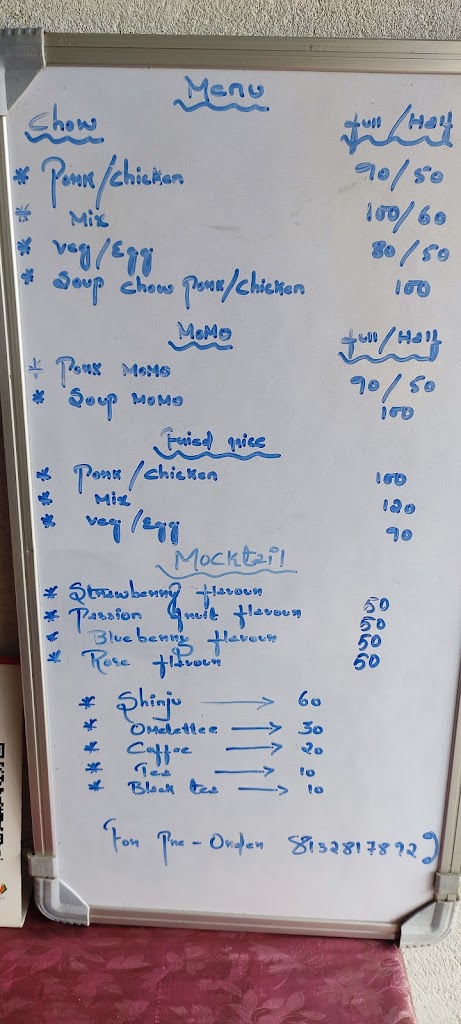 Menu
Chow full/Half
* Pork/chicken 90/50
* Mix 100/60
* veg/Egg 80/50
* Soup chow Pork/chicken 100
MoMo full/Half
* Pork MoMo 90/50
* Soup MoMo 100
Fried rice
* Pork/chicken 100
* Mix 120
* veg/Egg 90
Mocktail
* Strawberry flavour 50
* Passion fruit flavour 50
* Blueberry flavour 50
* Rose flavour 50
* Shinju → 60
* Omelettee → 30
* Coffee → 20
* Tea → 10
* Black tea → 10
For Pre-Order 8132817892